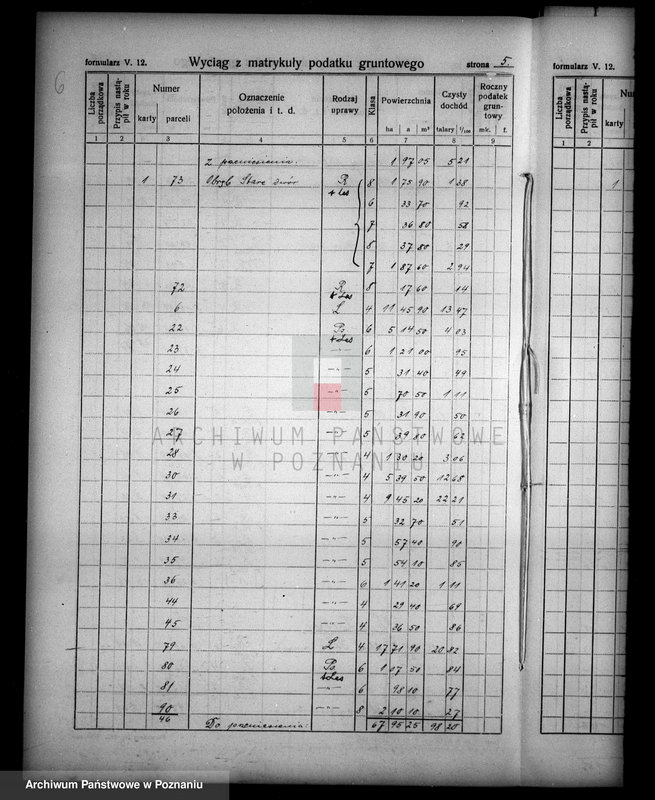 6
formularz V. 12. Wyciąg z matrykuły podatku gruntowego strona 5.
Liczba porządkowa
Przypis nastąpił w roku
Numer
karty parceli
Oznaczenie położenia i t. d.
Rodzaj uprawy
Klasa
Powierzchnia
ha a m²
Czysty dochód
talary 1/100
Roczny podatek gruntowy
mk. f.
1 2 3 4 5 6 7 8 9
z przeniesienia: 1 97 05 5 21
1 73 Obręb Stare dwór R + Las 8 1 75 90 1 38
6 33 70 92
7 36 80 58
8 37 80 29
7 1 87 60 2 94
72 R + Las 8 17 60 14
6 L 4 11 45 90 13 47
22 Ps + Las 6 5 14 50 4 03
23 —"— 6 1 21 00 95
24 —"— 5 31 40 49
25 —"— 5 70 50 1 11
26 —"— 5 31 90 50
27 —"— 5 39 80 62
28 —"— 4 1 30 20 3 06
30 —"— 4 5 39 50 12 68
31 —"— 4 9 45 20 22 21
33 —"— 5 32 70 51
34 —"— 5 57 40 90
35 —"— 5 54 10 85
36 —"— 6 1 41 20 1 11
44 —"— 4 29 40 69
45 —"— 4 36 50 86
79 L 4 17 71 90 20 82
80 Ps + Las 6 1 07 50 84
81 —"— 6 98 10 77
90 —"— 8 2 10 10 27
46 Do przeniesienia: 67 95 25 98 20
formularz V. 12.
Liczba porządkowa
Przypis nastąpił w roku
karty
1 2
1
ARCHIWUM PAŃSTWOWE
W POZNANIU
Archiwum Państwowe w Poznaniu